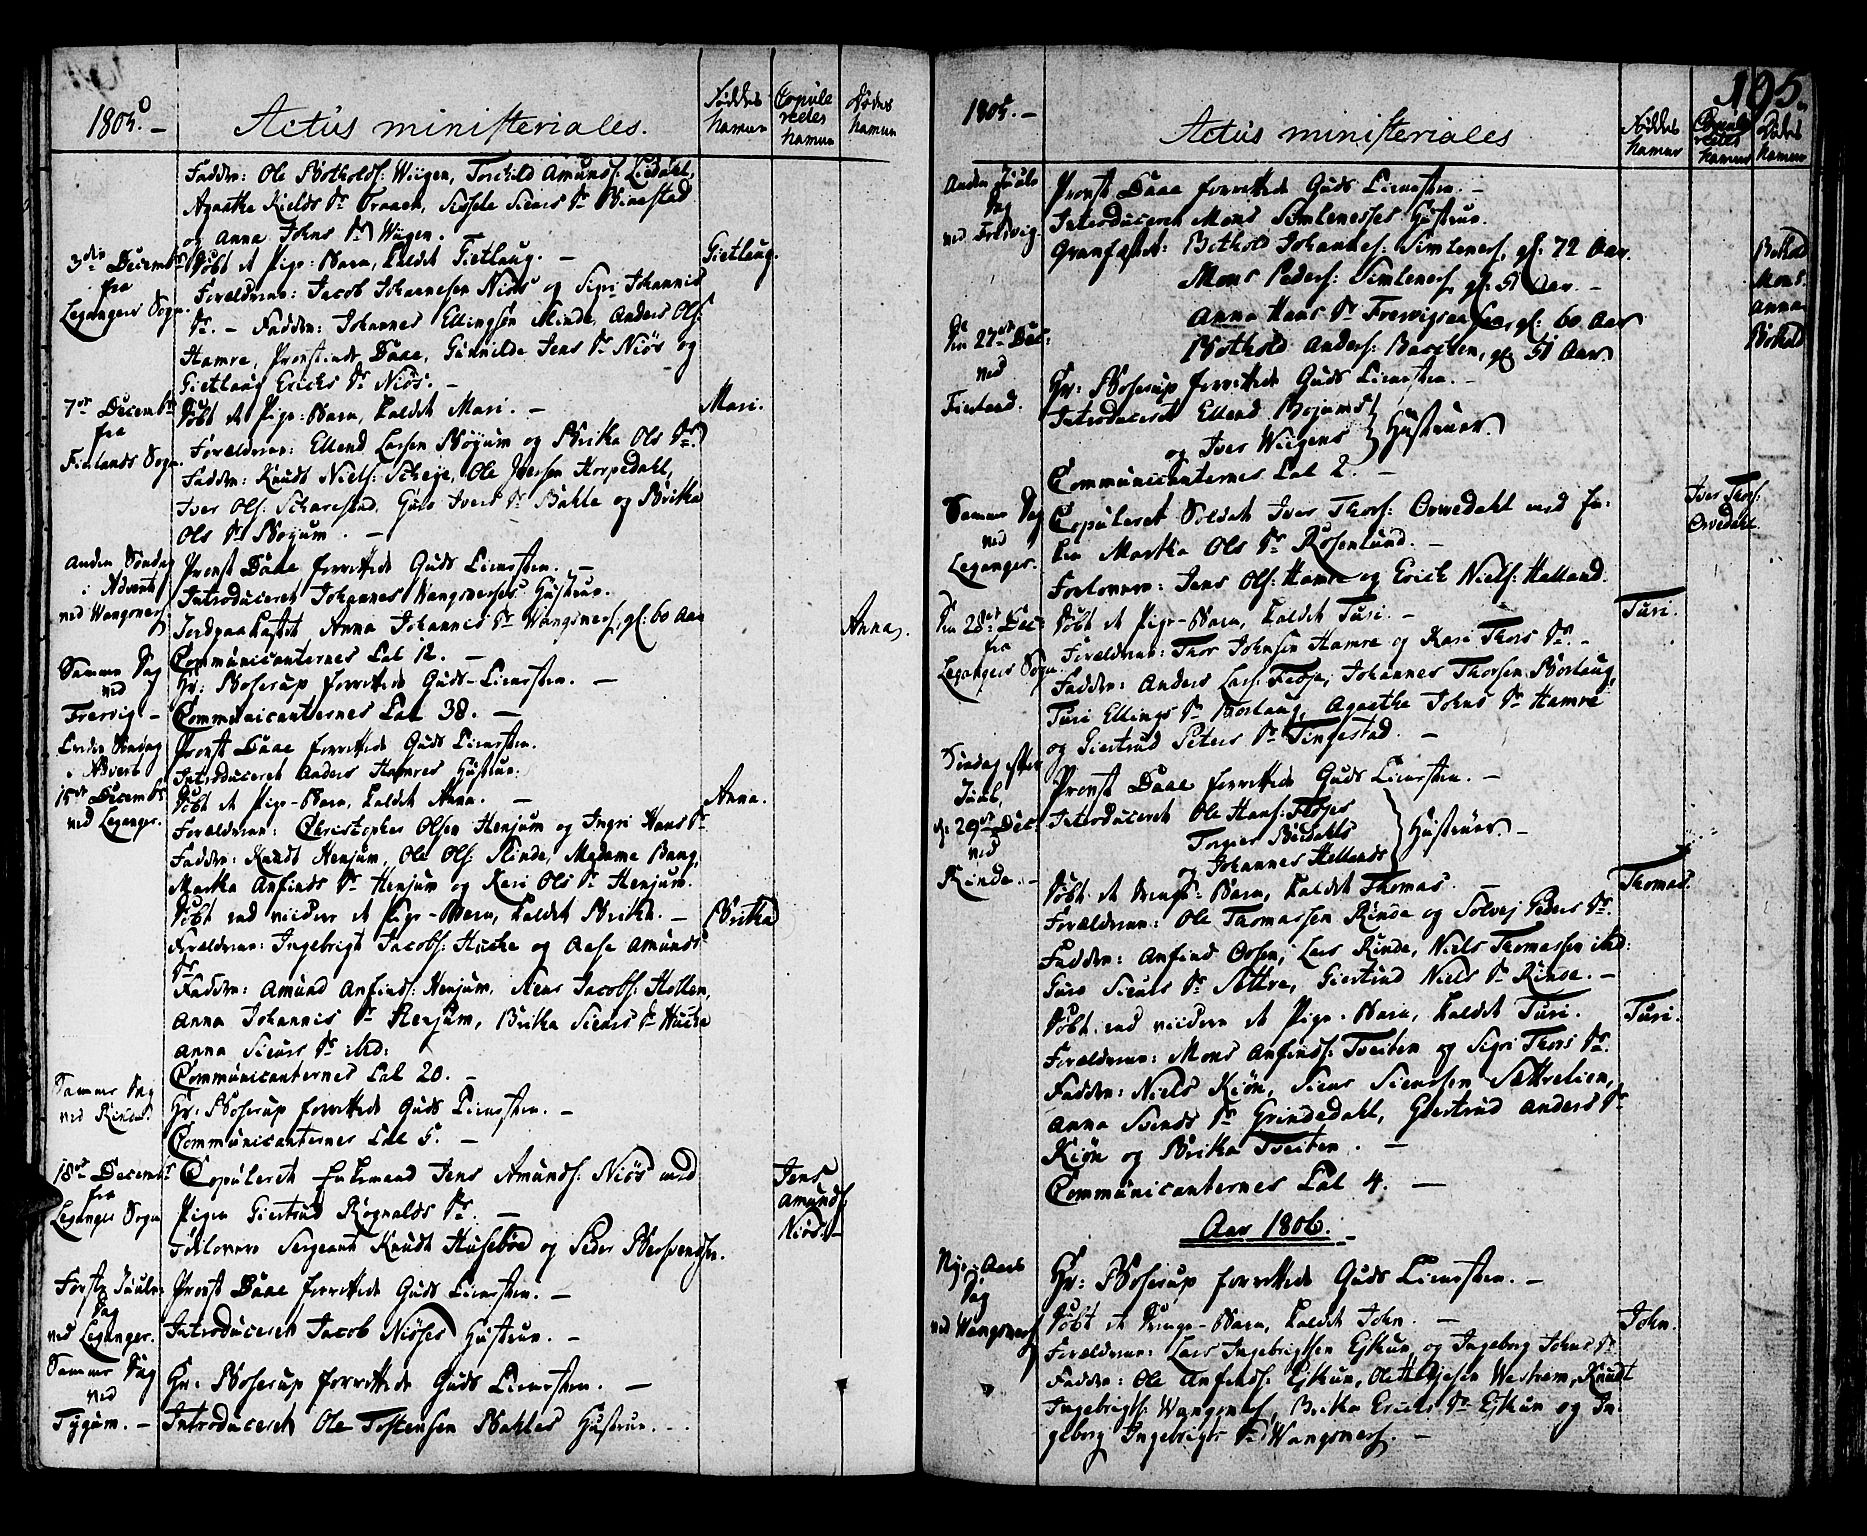 1805. –
Actus ministeriales.
Føddes Namne
Copuleredes Namne
Dødes Namne
Faddere: Ole Botholds: Wiigen, Torchild Amunds: Liedahl,
Agaethe Kields Dr. Fraaen, Sissele Siurs Dr. Binestad
og Anna Johns Dr. Wiigen.
3die Decembr. fra Leganger Sogn.
Døbt et Pige-Barn, kaldet Gietlaug. –
Gietlaug.
Forældrene: Jacob Johannesen Niøs og Sigri Johannis
Dr. – Faddere: Johannes Ellingsen Slinde, Anders Ols:
Hamre, Provstinde Daae, Gunnilde Jens Dr. Niøs og
Gietlaug Erichs Dr. Niøs. –
7de Decembr. fra Fierlands Sogn.
Døbt et Pige-Barn, kaldet Mari. –
Mari.
Forældrene: Ellend Larsen Bøyum og Britha Ols Dr.
Faddere: Knudt Niels: Scheje, Ole Iversen Horpedahl,
Iver Ols: Scharestad, Guro Ivers Dr. Bahle og Britha
Ols Dr. Bøyum. –
Anden Søndag i Advent ved Wangsnes
Provst Daae forrettede Guds Tieneste. –
Introduceret Johannes Wangsneses Hustrue.
Jordpaakastet Anna Johannis Dr. Wangsnes, gl: 60 Aar
Anna.
Communicanternes Tal 12. –
Samme Dag ved Fresvig –
Hr: Boserup forrettede Guds-Tieneste. –
Communicanternes Tal 38. –
Tredie Søndag i Advent 15de Decembr. ved Leganger.
Provst Daae forrettede Guds Tieneste.
Introduceret Anders Hamres Hustrue.
Døbt et Pige-Barn, kaldet Anna. –
Anna.
Forældrene: Christopher Olsen Henjum og Ingri Hans Dr.
Faddere: Knudt Henjum, Ole Ols: Slinde, Madame Bang,
Martha Anfinds Dr. Henjum og Kari Ols Dr. Henjum.
Døbt end viidere et Pige-Barn, kaldet Britha. –
Britha
Forældrene: Ingebrigt Jacobs: Huche og Aase Amunds
Dr.
Faddere: Amund Anfinds: Henjum, Jens Jacobs: Holten,
Anna Johannis Dr. Henjum, Britha Siurs Dr. Huche
Anna Siurs Dr. ibid:
Communicanternes Tal 20. –
Samme Dag ved Rinde.
Hr: Boserup forrettede Guds Tieneste. –
Communicanternes Tal 5. –
18de Decembr. fra Leganger Sogn
Copuleret Enkemand Jens Amunds: Niøs med
Jens Amunds: Niøs. –
Pigen Giertrud Rognalds Dr. –
Forlovere Sergeant Knudt Husebøe og Peder Bersvendsen.
Første Juule-Dag ved Leganger.
Provst Daae forrettede Guds Tieneste. –
Introduceret Jacob Niøses Hustrue. –
Samme Dag ved Tygum. –
Hr: Boserup forrettede Guds Tieneste. –
Introduceret Ole Tostensen Bahles Hustrue. –
195.
1805. –
Actus ministeriales
Føddes Namne
Copuleredes Namne
Dødes Namne
Anden Juule Dag ved Fresvig.
Provst Daae forrettede Guds Tieneste. –
Introduceret Mons Simlenesses Hustrue.
Gravfæstet: Bothold Johannes: Simlenes, gl: 72 Aar.
Bothold
Mons Peders: Simlenes, gl: 51 Aar. –
Mons
Anna Hans Dr. Fresvigsen gl: 60 Aar
Anna
Bothold Anders: Batchen, gl: 51 Aar
Bothold
Den 27de Dec: ved Fierland.
Hr: Boserup forrettede Guds Tieneste. –
Introduceret Ellend Bojums
og Iver Wiigens } Hustruer.
Communicanternes Tal 2. –
Samme Dag ved Leganger.
Copuleret Soldat Iver Thors: Orvedahl med En-
Iver Thors: Orvedahl
ken Martha Ols Dr. Rosenlund. –
Forlovere: Jens Ols: Hamre og Erich Niels: Helland.
Den 28de Dec: fra Leganger Sogn.
Døbt et Pige-Barn, kaldet Turi. –
Turi.
Forældrene: Thor Johnsen Hamre og Kari Thors Dr. –
Faddere: Anders Lars: Fedje, Johannes Thorsen Borlaug,
Turi Ellings Dr. Borlaug, Agaethe Johns Dr. Hamre
og Giertrud Peters Dr. Tingestad. –
Søndag efter Juul, d: 29de Dec: ved Rinde. –
Provst Daae forrettede Guds Tieneste. –
Introduceret Ole Hans: Flages
Torgier Beidahls
og Johannes Hellands } Hustruer –
Døbt et Drenge-Barn, kaldet Thomas.
Thomas.
Forældrene: Ole Thomassen Rinde og Solvej Peders Dr.
Faddere: Anfind Ossen, Lars Rinde, Niels Thomassen ibd:
Guro Siurs Dr. Sættre, Giertrud Niels Dr. Rinde. –
Døbt end viidere et Pige-Barn, kaldet Turi.
Turi.
Forældrene: Mons Anfinds: Tveiten og Sigri Thors Dr.
Faddere: Niels Kiøn, Siur Siursen Sættrelien,
Anna Svends Dr. Grindedahl, Giertrud Anders Dr.
Kiøn og Britha Tveiten. –
Communicanternes Tal 4. –
Aar 1806. –
Nye-Aars Dag ved Wangsnes
Hr: Boserup forrettede Guds Tieneste. –
Døbt et Drenge-Barn, kaldet John. –
John.
Forældrene: Lars Ingebrigtsen Eskun, og Ingeborg Johns Dr.
Faddere: Ole Anfinds: Eskun, Ole Helgesen Westrem, Knudt
Ingebrigts: Wangsnes, Britha Erichs Dr. Eskun og In-
geborg Ingebrigts Dr. Wangsnes. –